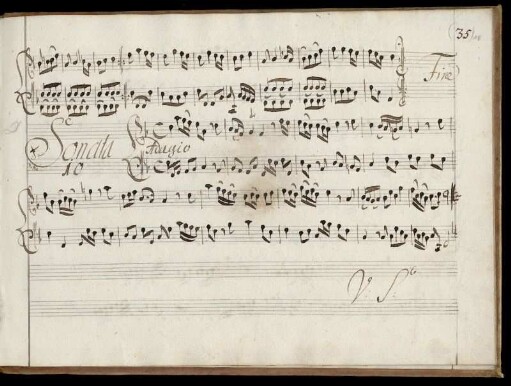 35
Fine
Sonata
10
Adagio
V. S.